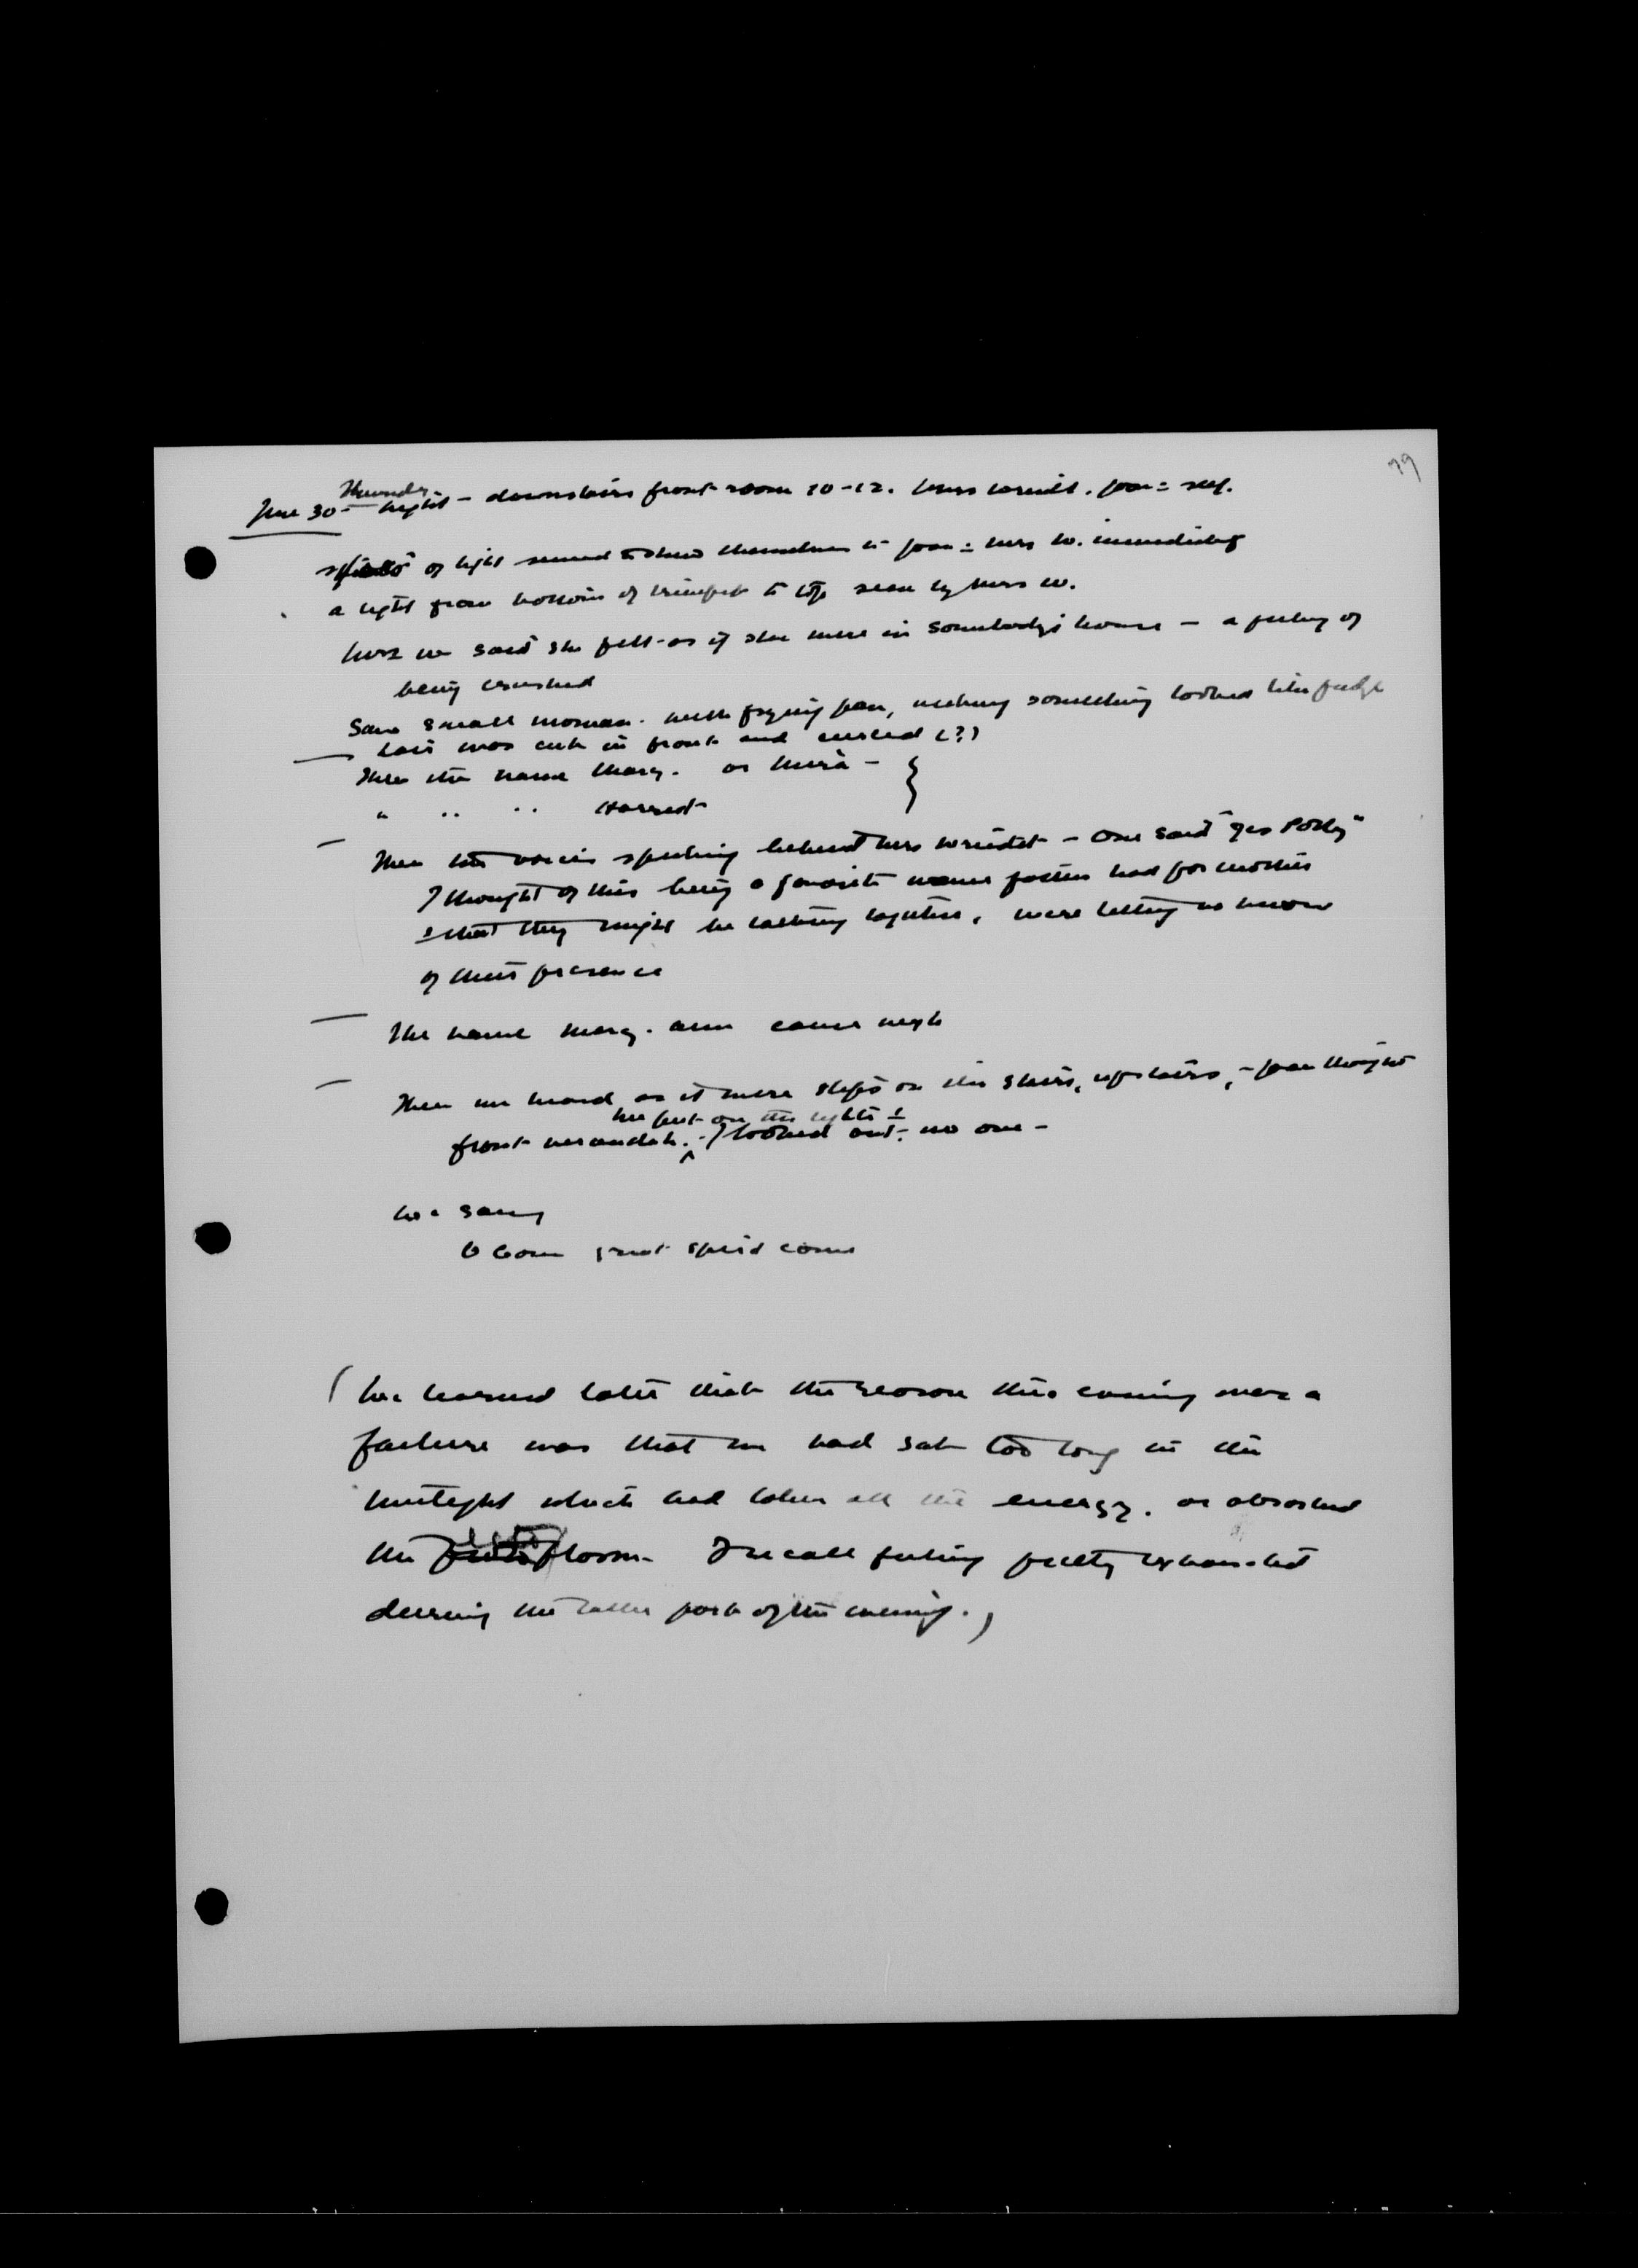 79
June 30 - Thursday night - downstairs front room 10-12. Mrs Wriedt. Joan & self.
of light seemed to show themselves to Joan & Mrs W. immediately
a light from bottom of trumpet to top seen by Mrs W.
Mrs W said she felt as if she were in somebody's house - a feeling of
being crushed
Saw small woman. with frying pan, making something looked like fudge
hair was cut in front and curled (?)
Then the name Mary. or
" " " Harriet
Then two voices speaking behind Mrs Wriedt - One said "yes Polly"
I thought of this being a favorite name father had for mother
& that they might be talking together, were letting us know
of their presence
The name Mary. Ann came next
Then we heard as it were steps on the stairs, upstairs, - Joan thought
we put on the lights &
front verandah. - I looked out - no one -
We sang
O Come great spirit come
(We learned later that the reason this evening was a
failure was that we had sat too long in the
which had taken all the energy. or absorbed
the plasm. I recall feeling pretty exhausted
during the latter part of the evening.)